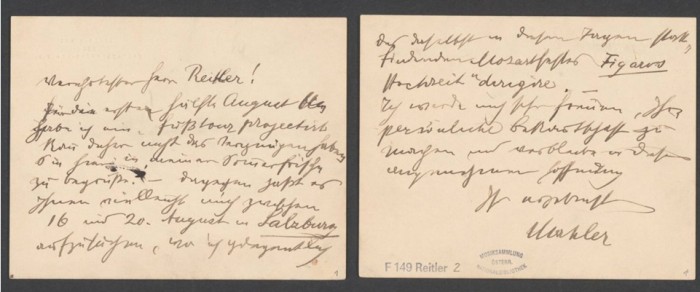 Verehrtester Herr Reitler!
Für die erste Hälfte August
habe ich eine Fußtour projectirt
Kann daher nicht das Vergnügen haben
Sie hier in meiner Sommerfrische
zu begrüßen. – dagegen paßt es
Ihnen vielleicht mich zwischen
16 und 20. August in Salzburg
aufzusuchen, wo ich gelegentlich
des daselbst in diesen Tagen statt-
findenden Mozartfestes Figaros
Hochzeit" dirigire.
Ich werde mich sehr freuen, Ihre
persönliche Bekanntschaft zu
machen und verbleibe in dieser
angenehmen Hoffnung
Ihr ergebenster
Mahler
F 149 Reitler 2
MUSIKSAMMLUNG